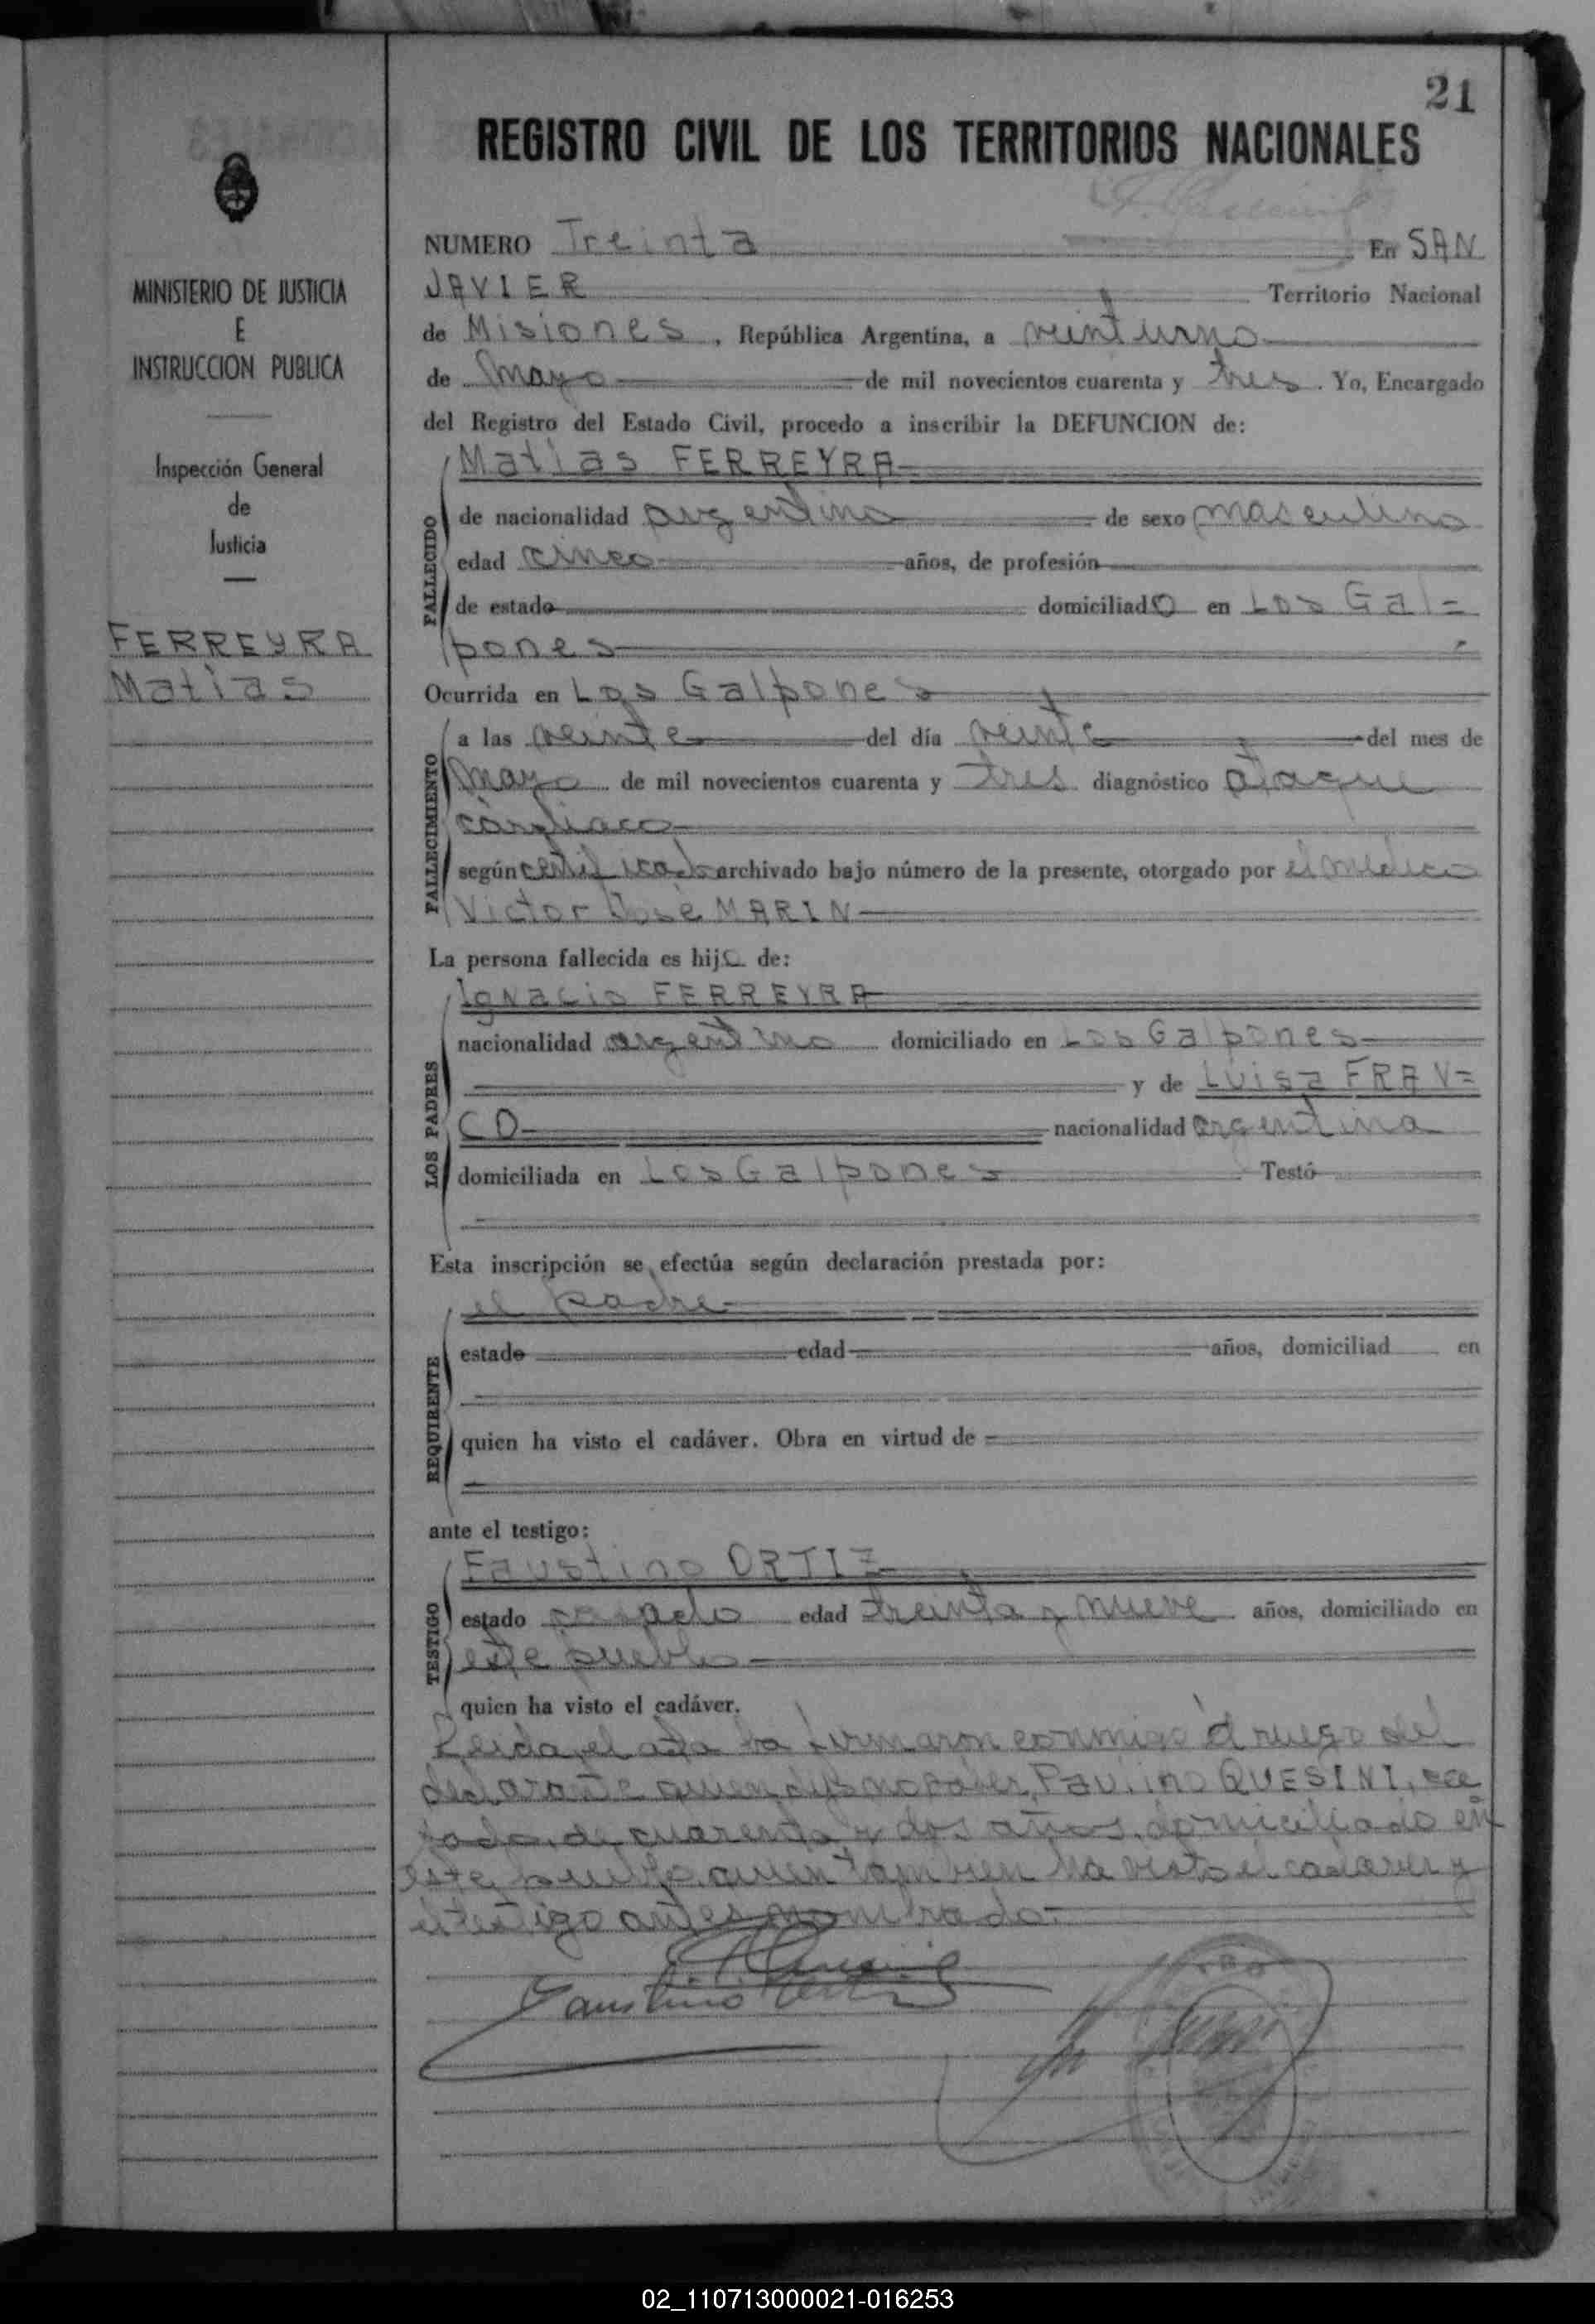 21
REGISTRO CIVIL DE LOS TERRITORIOS NACIONALES
MINISTERIO DE JUSTICIA
E
INSTRUCCION PUBLICA
Inspección General
de
Justicia
FERREYRA
Matias
NUMERO Treinta En SAN
JAVIER Territorio Nacional
de Misiones, República Argentina, a veintiuno
de Mayo de mil novecientos cuarenta y tres. Yo, Encargado
del Registro del Estado Civil, procedo a inscribir la DEFUNCION de:
FALLECIDO
Matias FERREYRA
de nacionalidad argentino de sexo masculino
edad cinco años, de profesión
de estado domiciliado en Los Gal=
pones
Ocurrida en Los Galpones
FALLECIMIENTO
a las veinte del día veinte del mes de
Mayo de mil novecientos cuarenta y tres diagnóstico ataque
cardiaco
según certificado archivado bajo número de la presente, otorgado por el médico
Victor José MARIN
La persona fallecida es hijo de:
LOS PADRES
Ignacio FERREYRA
nacionalidad argentino domiciliado en Los Galpones
y de Luisa FRAN=
CO nacionalidad argentina
domiciliada en Los Galpones Testó
Esta inscripción se efectúa según declaración prestada por:
REQUIRENTE
el padre
estado edad años, domiciliad en
quien ha visto el cadáver. Obra en virtud de
ante el testigo:
TESTIGO
Faustino ORTIZ
estado casado edad treinta y nueve años, domiciliado en
este pueblo
quien ha visto el cadáver.
Leida el acta la firmaron conmigo á ruego del
declarante quien dijo no saber, Paulino QUESINI, ca
sado, de cuarenta y dos años, domiciliado en
este pueblo, quien tambien ha visto el cadaver y
el testigo antes nombrado.
Faustino Ortiz
02_110713000021-016253